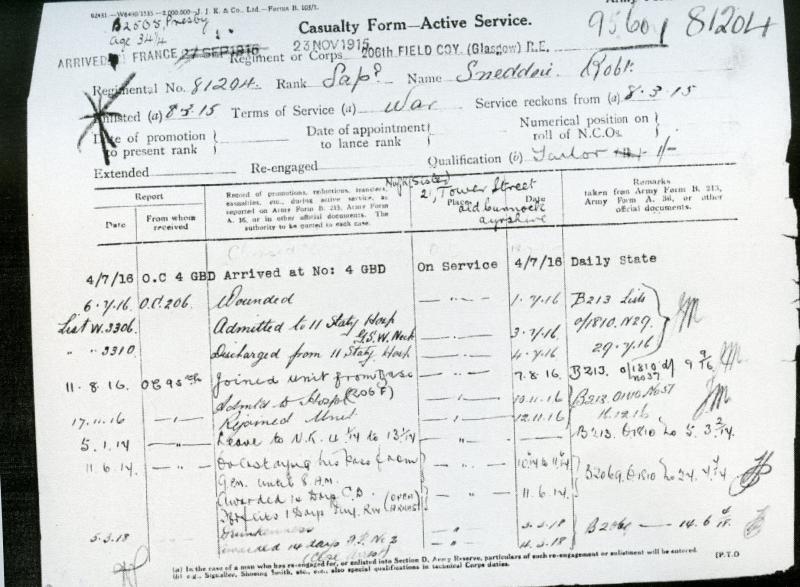 02431—W8490/1535—2,000,000—J. J. K. & Co., Ltd.—Forms B. 103/1.
Casualty Form—Active Service.
B2505, Presby
Age 34¼
95601 81204
ARRIVED FRANCE 27 SEP 1915 23 NOV 1915
Regiment or Corps 206th FIELD COY. (Glasgow) R.E.
Regimental No. 81204. Rank Sapr Name Sneddon Robt.
Enlisted (a) 8-3-15 Terms of Service (a) War Service reckons from (a) 8-3-15
Date of promotion to present rank
Date of appointment to lance rank
Numerical position on roll of N.C.Os.
Extended Re-engaged Qualification (b) Tailor 1/-
Report
Date
From whom received
Record of promotions, reductions, transfers, casualties, etc., during active service, as reported on Army Form B. 213, Army Form A. 36, or in other official documents. The authority to be quoted in each case.
(Sister)
21, Tower Street
Old Cumnock
Ayrshire
Place
Date
Remarks
taken from Army Form B. 213, Army Form A. 36, or other official documents.
4/7/16 O.C 4 GBD Arrived at No: 4 GBD On Service 4/7/16 Daily State
6.7.16 O.C 206. Wounded —"— 1.7.16 B213 Lists
List W.3306. Admitted to 11 Staty Hosp G.S.W. Neck —"— 3.7.16 O/1810. N29.
" " 3310. Discharged from 11 Staty Hosp —"— 4.7.16 29.7.16
11.8.16. Joined Unit from Base —"— 7.8.16 B213. O/1810 d/ 9/9/16
Admtd to Hosp (206 F) —"— 10.11.16 B213
17.11.16 —"— Rejoined Unit —"— 12.11.16
5.1.14 —"— Leave to —"— B213
11.6.14. —"—
until 8 A.M. B2069
Awarded 14 Days C.B. —"— 11.6.14.
Forfeits 1 Days Pay. R.W (OPEN ARREST)
5.3.18 Drunkenness " 3.3.18 B2069
Awarded 14 days F.P. No 2 " 4.3.18
(Close arrest)
(a) In the case of a man who has re-engaged for, or enlisted into Section D, Army Reserve, particulars of such re-engagement or enlistment will be entered.
(b) e.g., Signaller, Shoeing Smith, etc., etc., also special qualifications in technical Corps duties.
[P.T.O